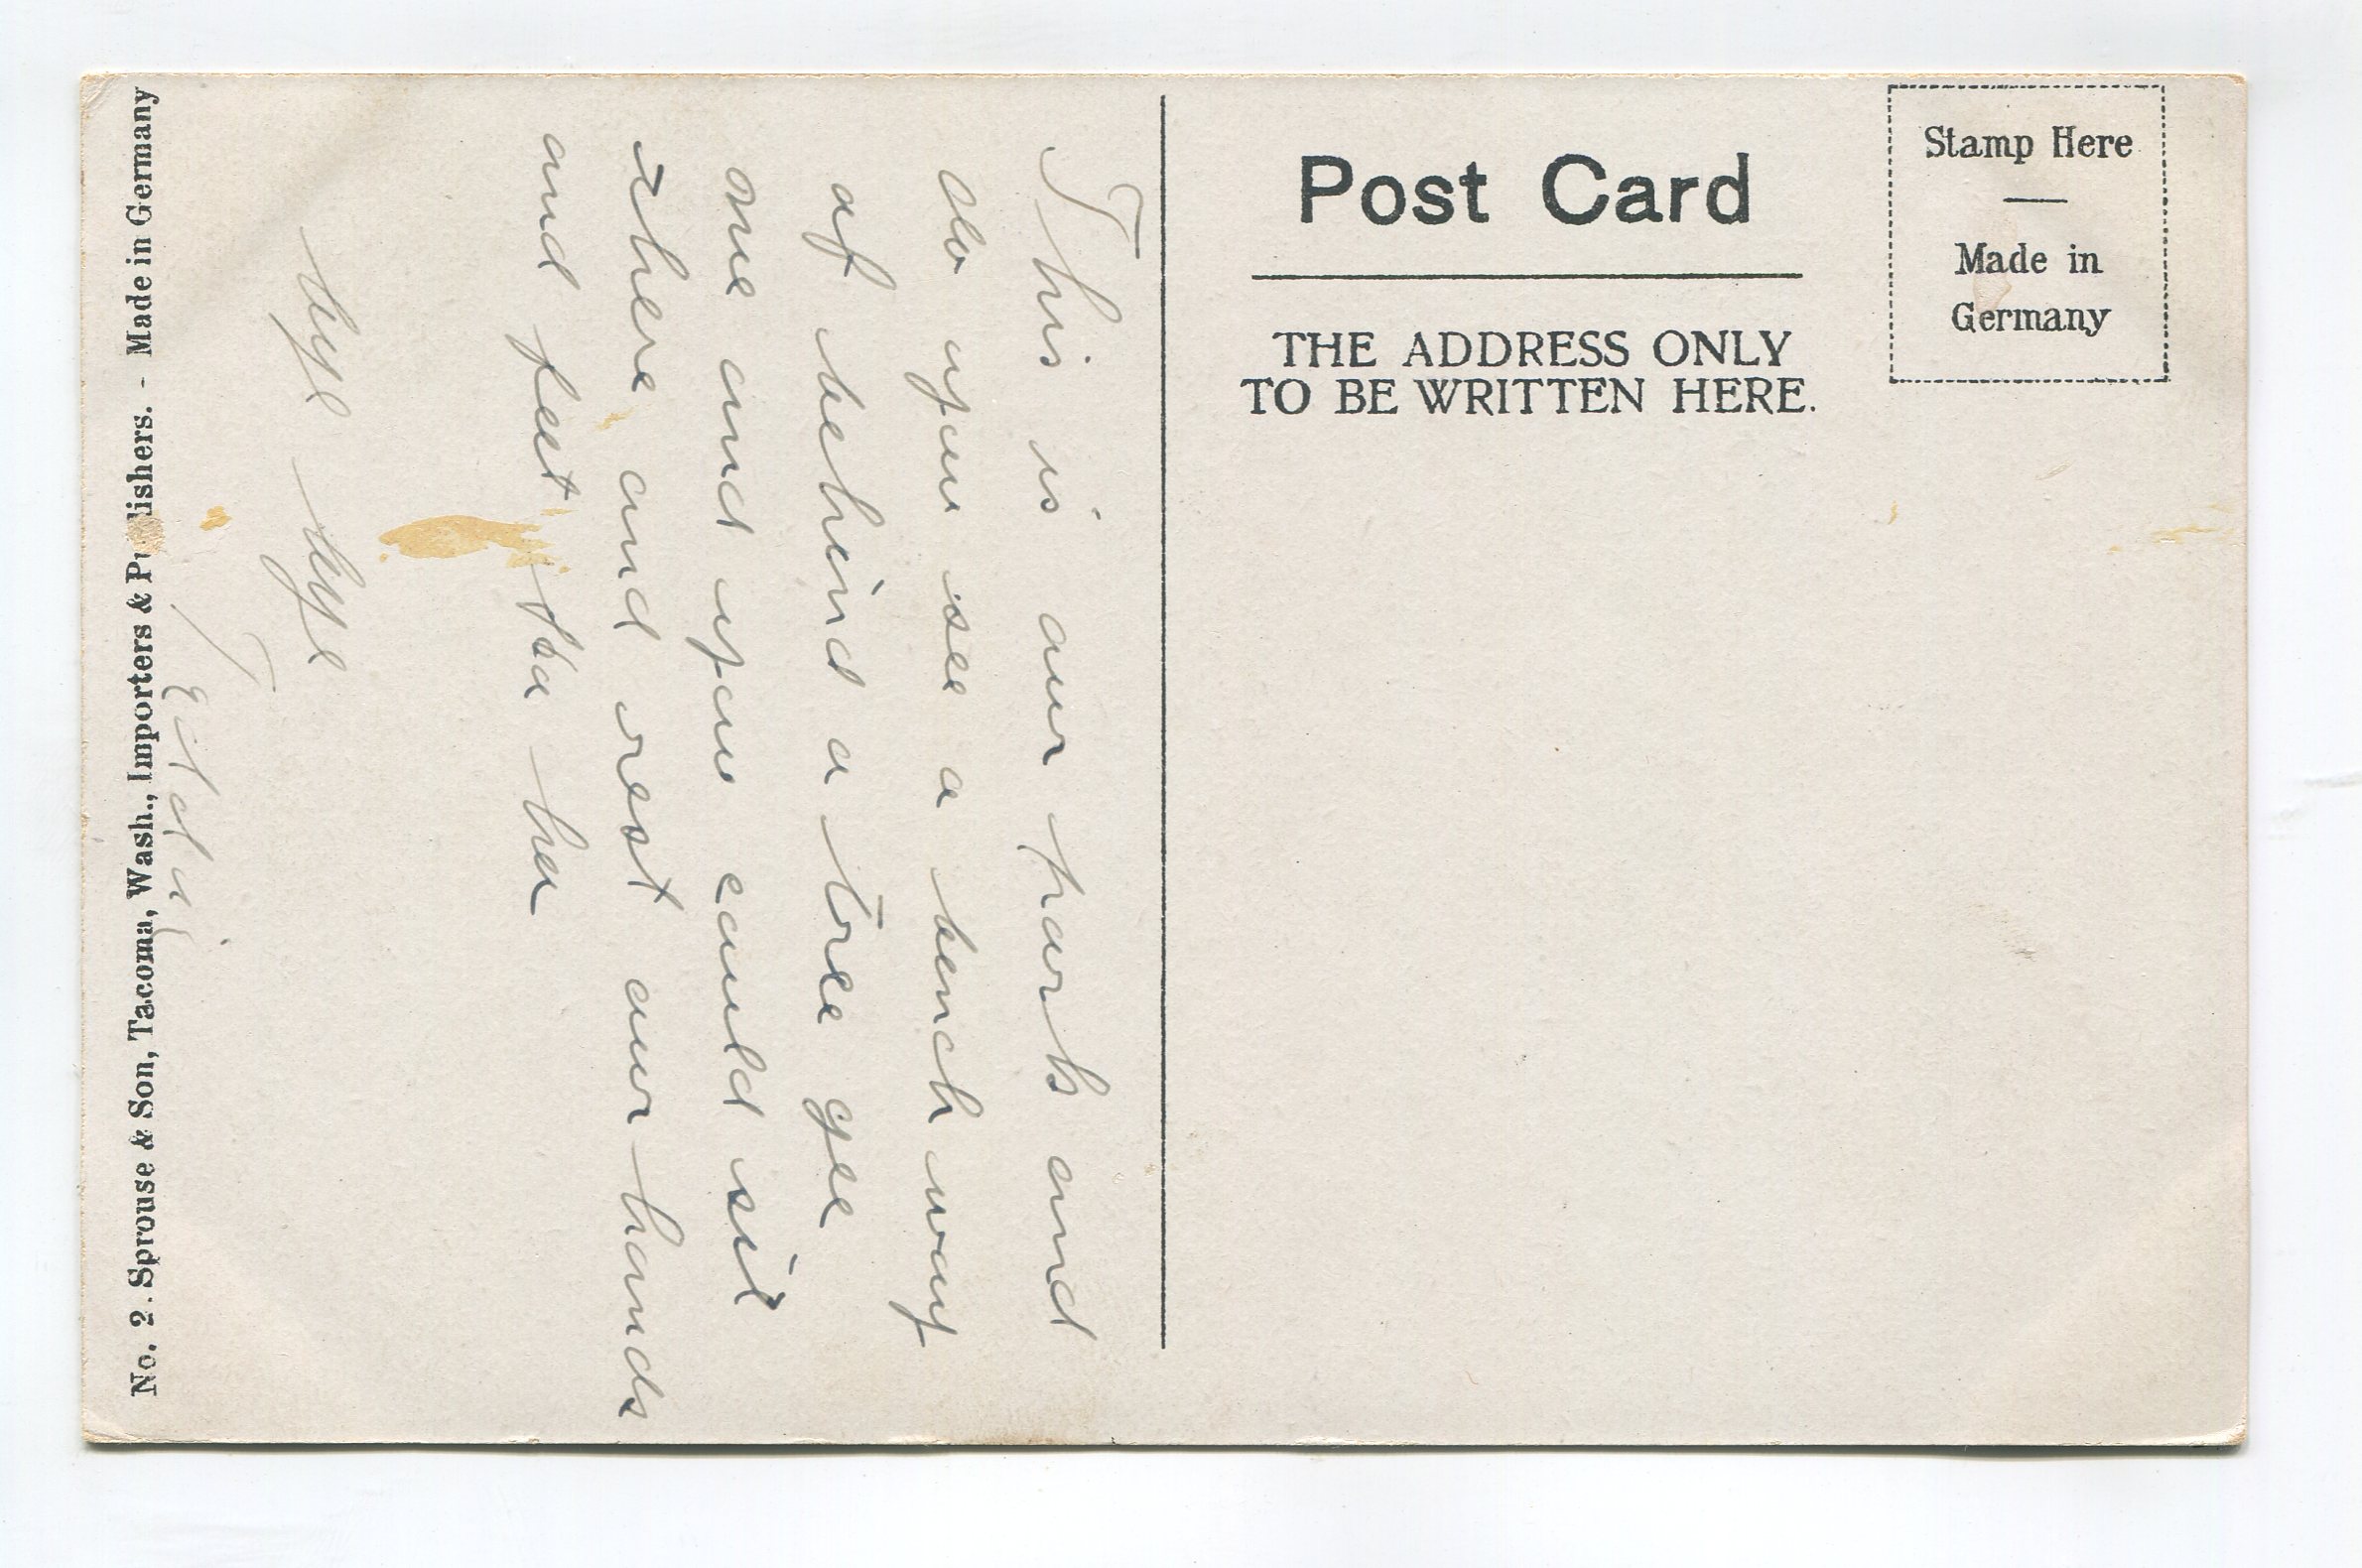 Post Card
THE ADDRESS ONLY
TO BE WRITTEN HERE.
Stamp Here
Made in
Germany
This is our park and
do you see a bench way
of behind a tree gee
me and you could sit
there and rest our hands
and feet ha ha
bye bye
No. 2. Sprouse & Son, Tacoma, Wash., Importers & Publishers. - Made in Germany